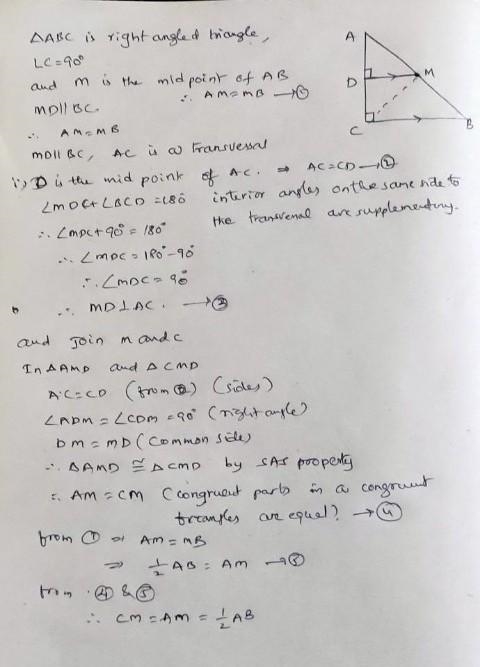 △ABC is right angled triangle,
LC=90°
and M is the midpoint of AB
∴ AM=MB →①
MD∥BC.
∴ AM=MB
MD∥BC, AC is a transversal
i) D is the mid point of AC. ⇒ AC=CD →②
∠MDC+∠BCD=180° interior angles on the same side to
the transversal are supplementary.
∴ ∠MDC+90°=180°
∴ ∠MDC=180°-90°
∴ ∠MDC=90°
∴ MD⊥AC. →③
and join M and C
In △AMD and △CMD
AC=CD (from ②) (sides)
∠ADM=∠CDM=90° (right angle)
DM=MD (Common side)
∴ △AMD≅△CMD by SAS property
∴ AM=CM (congruent parts in a congruent
triangles are equal? →④
from ① ⇒ AM=MB
⇒ 1/2 AB=AM →⑤
from ④ & ⑤
∴ CM=AM=1/2 AB
A
D
M
C
B